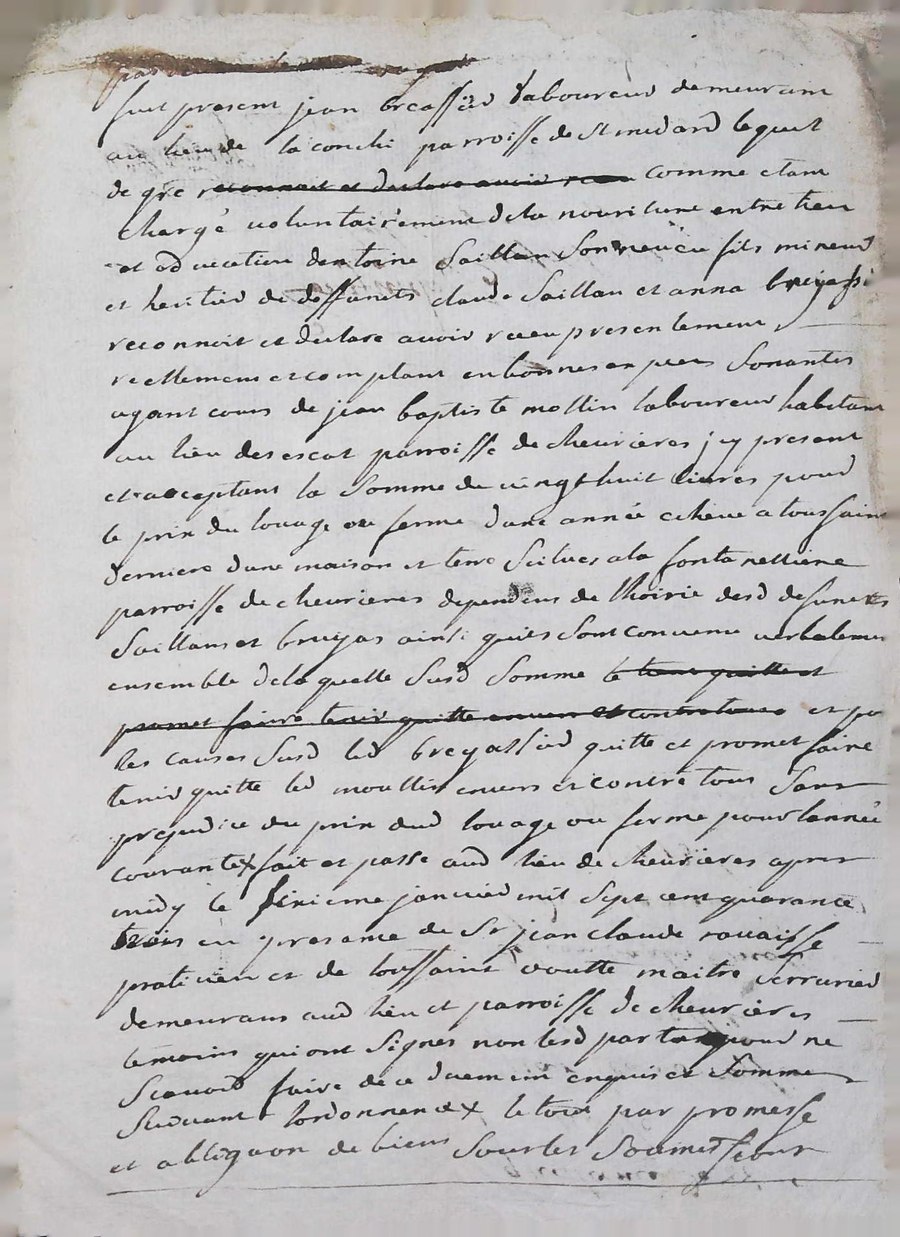 fut present jean breassier laboureur demeurant
au lieu de la conchi parroisse de St medard lequel
de gré reconnait et declare avoir receu comme etant
chargé voluntairement dela nouriture entretien
et education dentoine Saillan Son neveu fils mineur
et heritier de deffunts claude Saillan et anna
reconnoit et declare avoir receu presentement
reellement et comptant en bonnes especes Sonantes
ayant cours de jean baptiste mollin laboureur habitant
au lieu desescot parroisse de cheurieres icy present
et acceptant la Somme de vingt huit livres pour
le prix du louage ou ferme dune année echeue a toussaint
derniere dune maison et terre Scitues ala fontanelliere
parroisse de cheurieres dependens de lhoirie desd defunets
Saillans et bruyas ainsi quies Sont convenu verbalement
ensemble dela quelle Susd Somme le tient quitte et
promet faire tenir quitte envers et contre tous et po
les causes Susd led breyassier quitte et promet faire
tenir quitte led moullin envers et contre tous Sans
prejudice du prix dud louage ou ferme pour lanneé
courante x fait et passé aud lieu de cheurieres apres
midy le Sixieme janvier mil Sept cent quarante
trois en presence de Sr jean claude rouaisse
praticien et de toussaint voutte maitre serrurier
demeurans aud lieu et parroisse de cheurieres
temoins qui ont Signes non lesd parties pour ne
Scavoir faire de ce duement enquis et Sommes
Suivant lordonnence x le tout par promesse
et obligaon de biens Sous les Soumissions